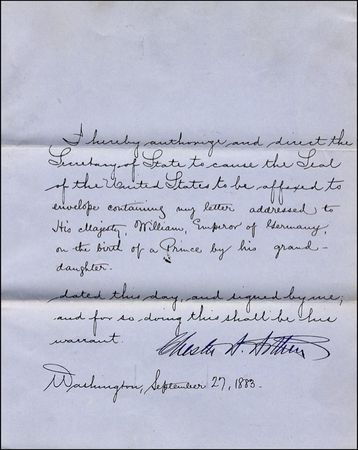 I hereby authorize and direct the
Secretary of State to cause the Seal
of the United States to be affixed to
envelope containing my letter addressed to
His Majesty, William, Emperor of Germany,
on the birth of a Prince by his grand-
daughter.
dated this day, and signed by me,
and for so doing this shall be his
warrant.
Chester A. Arthur
Washington, September 27, 1883.